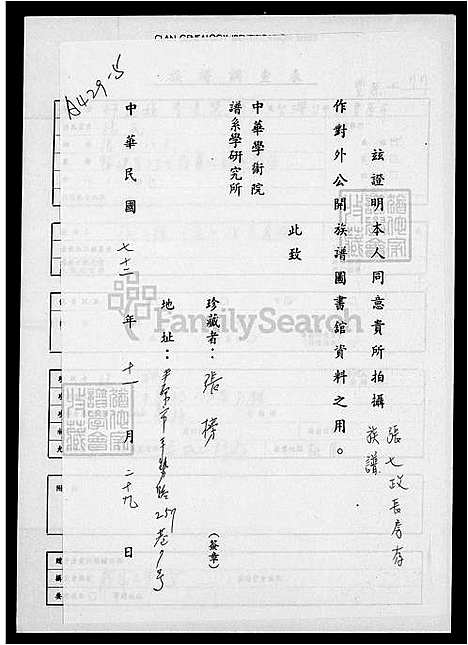 A429-5
茲證明本人同意貴所拍攝張七政長房存族譜
作對外公開族譜圖書館資料之用。
此致
中華學術院
譜系學研究所
珍藏者：張榜（簽章）
地址：豐原市豐勢路257巷9号
中華民國七十三年十一月二十九日
FamilySearch